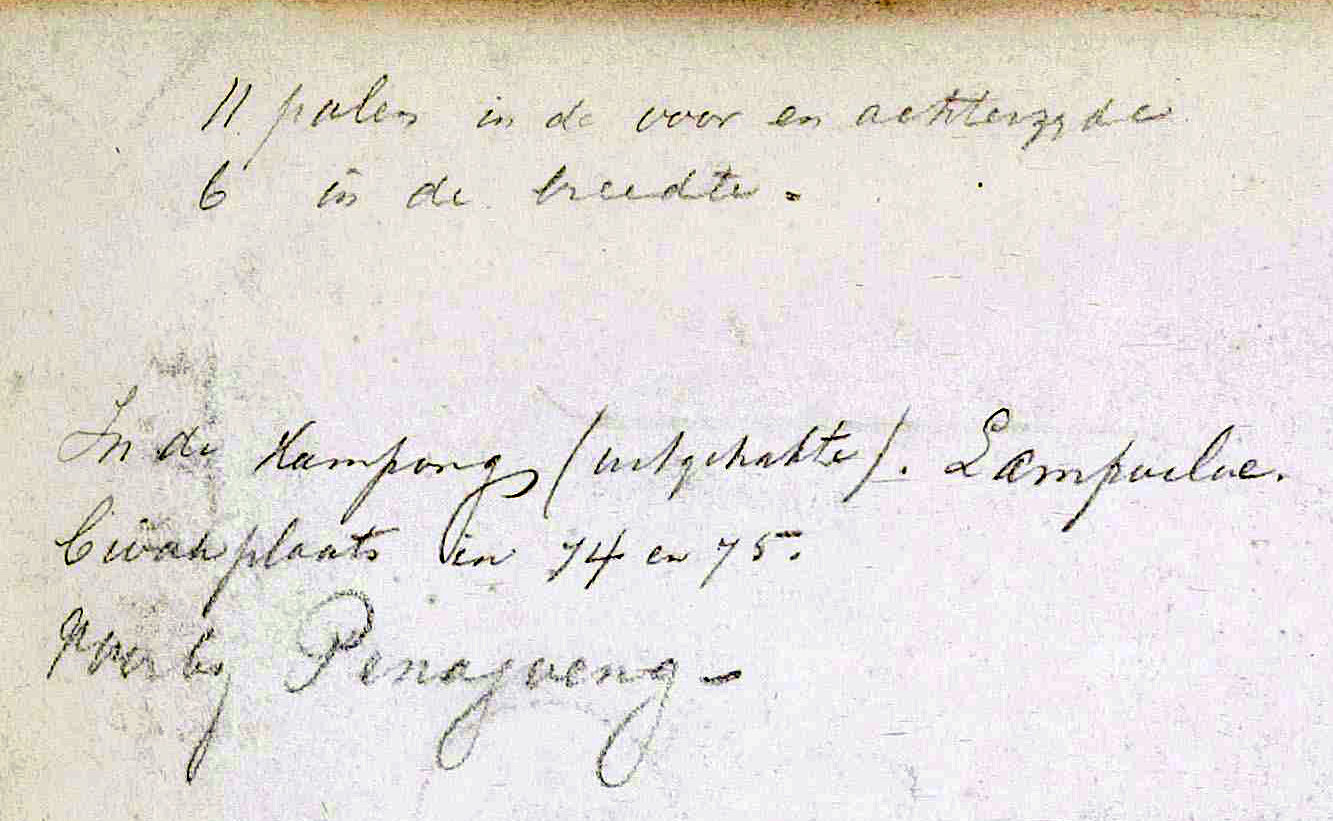 11 palen in de voor en achterzyde
6 in de breedte.
In de Kampong (uitgehakte). Lampoeloe.
Bivakplaats in 74 en 75.
by Penajoeng-